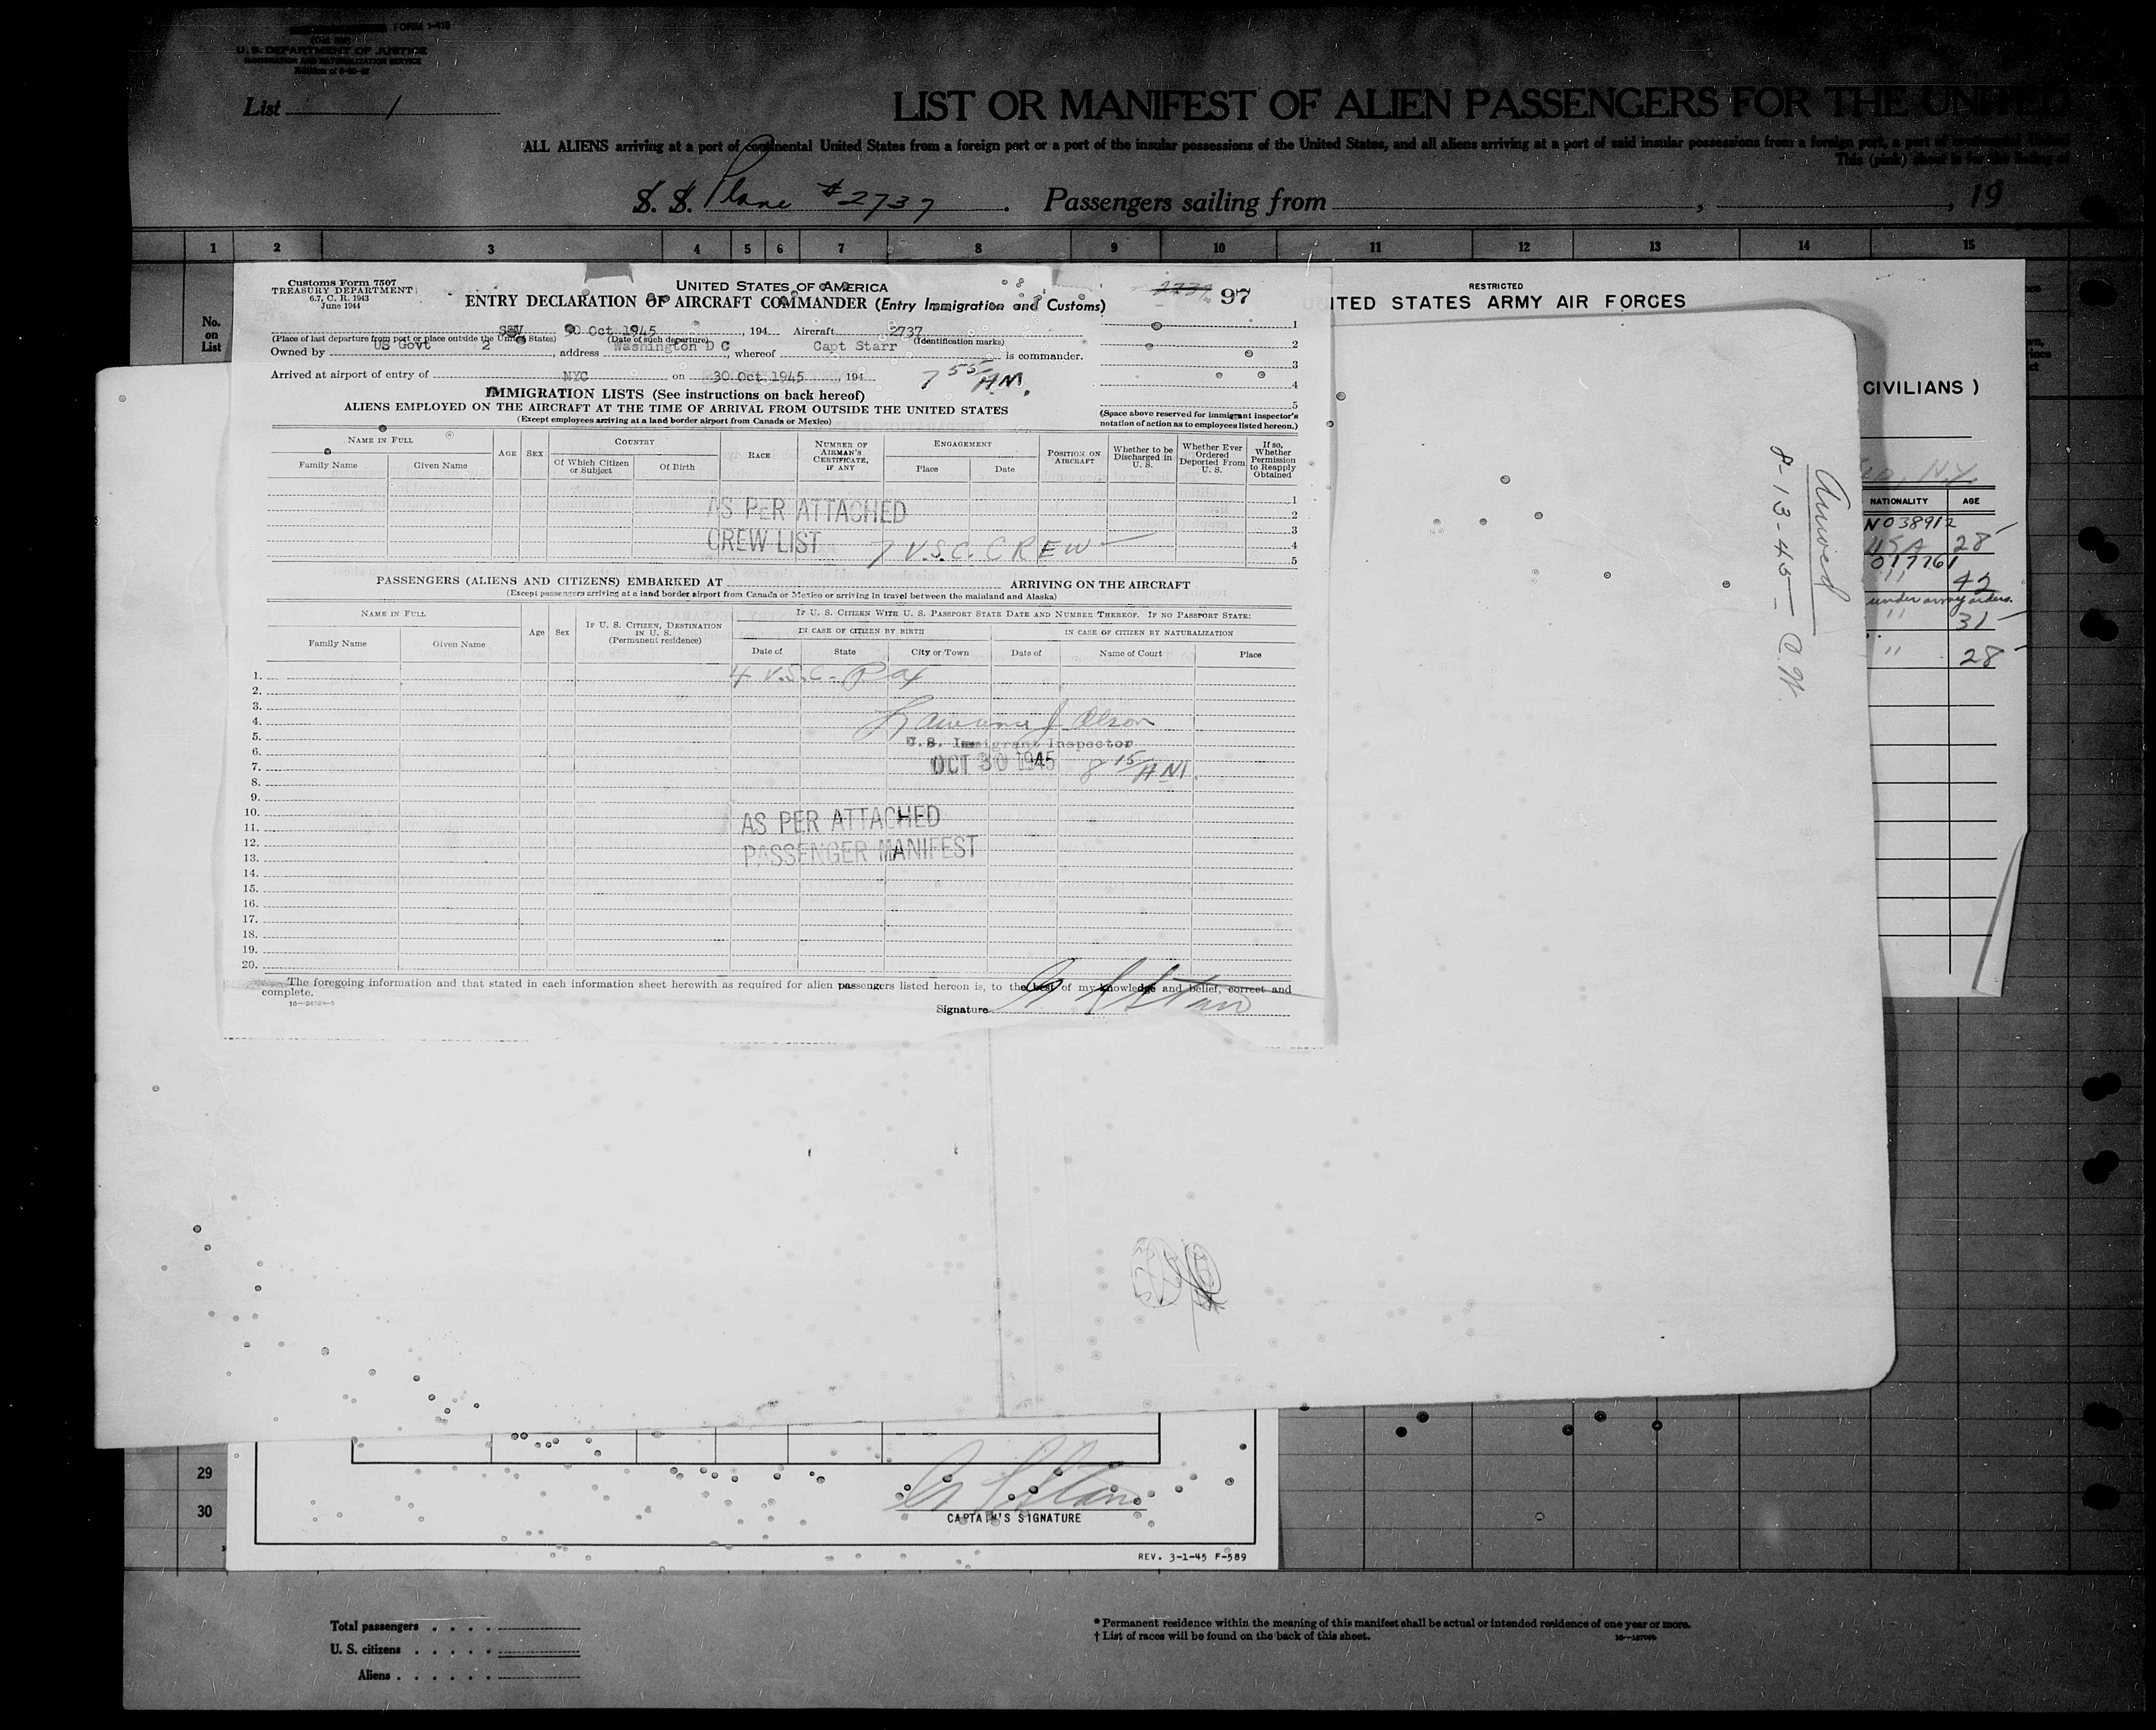 FORM I-418
U. S. DEPARTMENT OF JUSTICE
IMMIGRATION AND NATURALIZATION SERVICE
List 1
LIST OR MANIFEST OF ALIEN PASSENGERS FOR THE UNITED
ALL ALIENS arriving at a port of continental United States from a foreign port or a port of the insular possessions of the United States, and all aliens arriving at a port of said insular possessions from a foreign port, a port of continental United
This (pink) sheet is for the listing of
S. S. Plane #2737. Passengers sailing from , , 19
1 2 3 4 5 6 7 8 9 10 11 12 13 14 15
No.
on
List
Customs Form 7507
TREASURY DEPARTMENT
6.7, C. R. 1943
June 1944
UNITED STATES OF AMERICA
ENTRY DECLARATION OF AIRCRAFT COMMANDER (Entry Immigration and Customs)
2737 97
SSV 30 Oct 1945, 194 Aircraft 2737
(Place of last departure from port or place outside the United States) (Date of such departure) (Identification marks)
Owned by US Govt 2, address Washington D C, whereof Capt Starr is commander.
Arrived at airport of entry of NYC on 30 Oct 1945, 194 7 55 AM.
1
2
3
4
5
IMMIGRATION LISTS (See instructions on back hereof)
ALIENS EMPLOYED ON THE AIRCRAFT AT THE TIME OF ARRIVAL FROM OUTSIDE THE UNITED STATES
(Except employees arriving at a land border airport from Canada or Mexico)
(Space above reserved for immigrant inspector's
notation of action as to employees listed hereon.)
NAME IN FULL
Family Name Given Name
AGE SEX
COUNTRY
Of Which Citizen or Subject Of Birth
RACE
NUMBER OF AIRMAN'S CERTIFICATE, IF ANY
ENGAGEMENT
Place Date
POSITION ON AIRCRAFT
Whether to be Discharged in U. S.
Whether Ever Ordered Deported From U. S.
If so, Whether Permission to Reapply Obtained
1
2
3
4
5
AS PER ATTACHED
CREW LIST 7 U.S.C. CREW
PASSENGERS (ALIENS AND CITIZENS) EMBARKED AT ARRIVING ON THE AIRCRAFT
(Except passengers arriving at a land border airport from Canada or Mexico or arriving in travel between the mainland and Alaska)
NAME IN FULL
Family Name Given Name
Age Sex
IF U. S. CITIZEN, DESTINATION IN U. S. (Permanent residence)
IF U. S. CITIZEN WITH U. S. PASSPORT STATE DATE AND NUMBER THEREOF. IF NO PASSPORT STATE:
IN CASE OF CITIZEN BY BIRTH IN CASE OF CITIZEN BY NATURALIZATION
Date of State City or Town Date of Name of Court Place
1. 4 U.S.C. Pax
2.
3.
4. Lawrence J Olson
5. U.S. Immigrant Inspector
6.
7. OCT 30 1945 8 15 AM.
8.
9.
10. AS PER ATTACHED
11.
12. PASSENGER MANIFEST
13.
14.
15.
16.
17.
18.
19.
20.
The foregoing information and that stated in each information sheet herewith as required for alien passengers listed hereon is, to the best of my knowledge and belief, correct and
complete.
Signature Starr
RESTRICTED
UNITED STATES ARMY AIR FORCES
CIVILIANS )
N.Y.
NATIONALITY AGE
NO38912
USA 28
017761
" 42
under army orders.
" 31
" 28
Arrived
8-13-45
29
30
CAPTAIN'S SIGNATURE
REV. 3-1-45 F-589
Total passengers . . . .
U. S. citizens . . . . .
Aliens . . . . . .
* Permanent residence within the meaning of this manifest shall be actual or intended residence of one year or more.
† List of races will be found on the back of this sheet.